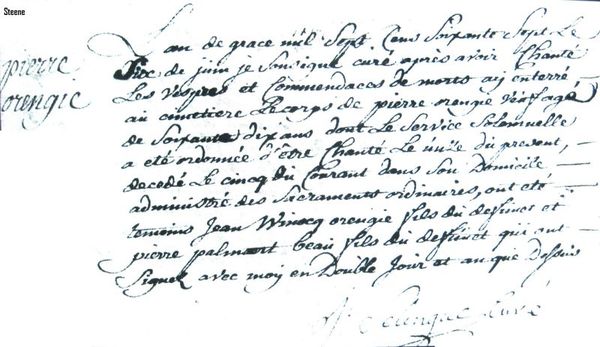 Steene
pierre
orengie
L an de grace mil Sept Cens Soixante Sept Le
Six de juin je Sousigné curé après avoir Chanté
Les Vespres et Commendaces de morts aij enterré
au cimetiere Le corps de pierre orengie Veuf agé
de Soixante dix ans dont Le Service Solemnelle
a eté ordonnée d'être Chanté Le huit du present,
decedé Le cinq du Courant dans Son Domicile
administré des Sacraments ordinaires, ont eté
temoins Jean Winocq orengie fils du deffunct et
pierre palmart beau fils du deffunct qui ont
Signez avec moy en Double Jour et an que Dessus
Curé